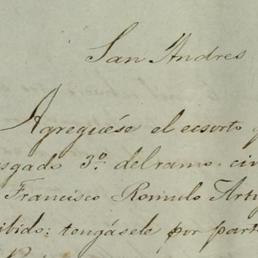 San Andres
Agreguése el escrito
sgado 3º del ramo civ
Francisco Romulo Arty
ibido: tengásele por part